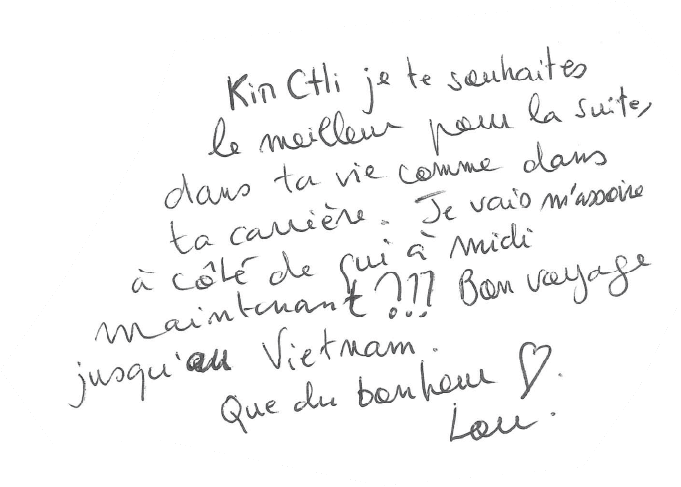 Kin Ctli je te souhaites
le meilleur pour la suite,
dans ta vie comme dans
ta carrière. Je vais m'assoire
à côté de qui à midi
maintenant ?!!! Bon voyage
jusqu'au Vietnam.
Que du bonheur ♡.
Lou.